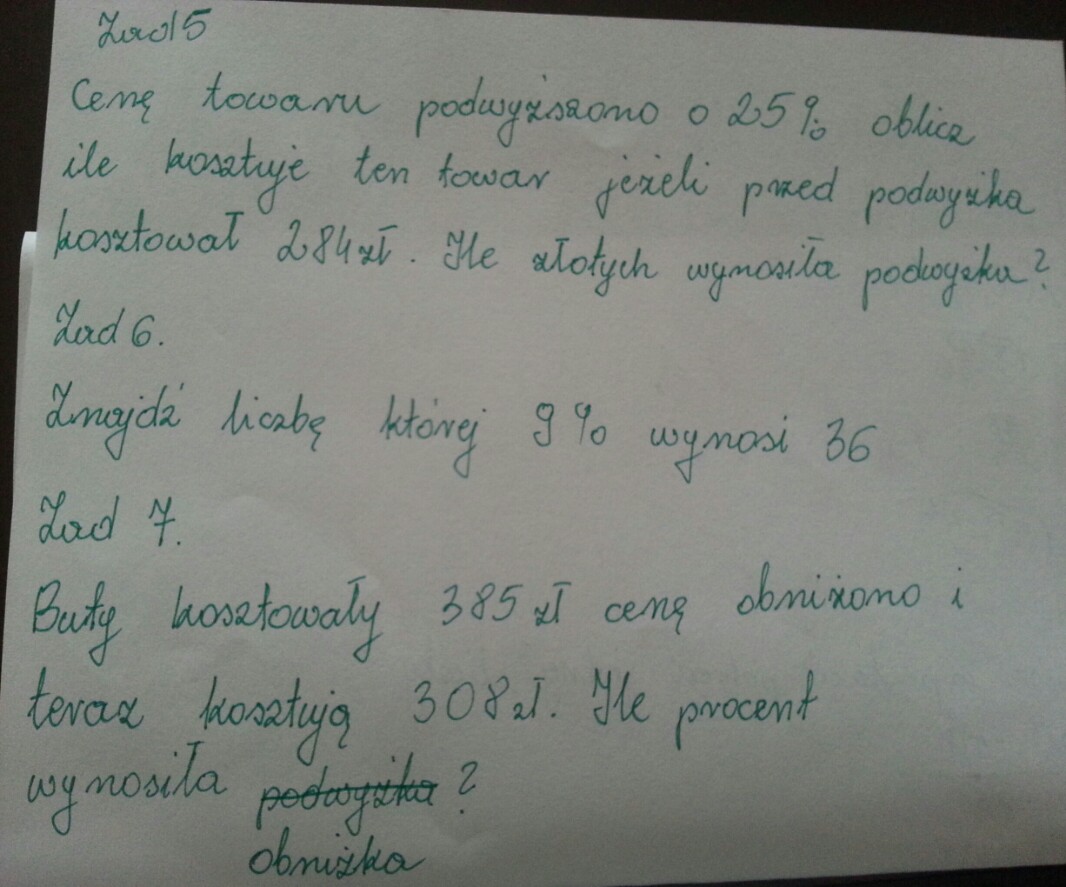 Zad 5
Cenę towaru podwyższono o 25% oblicz
ile kosztuje ten towar jeżeli przed podwyżka
kosztował 284zł. Ile złotych wynosiła podwyżka?
Zad 6.
Znajdź liczbę której 9% wynosi 36
Zad 7.
Buty kosztowały 385 zł cenę obniżono i
teraz kosztują 308zł. Ile procent
wynosiła podwyżka ?
obniżka